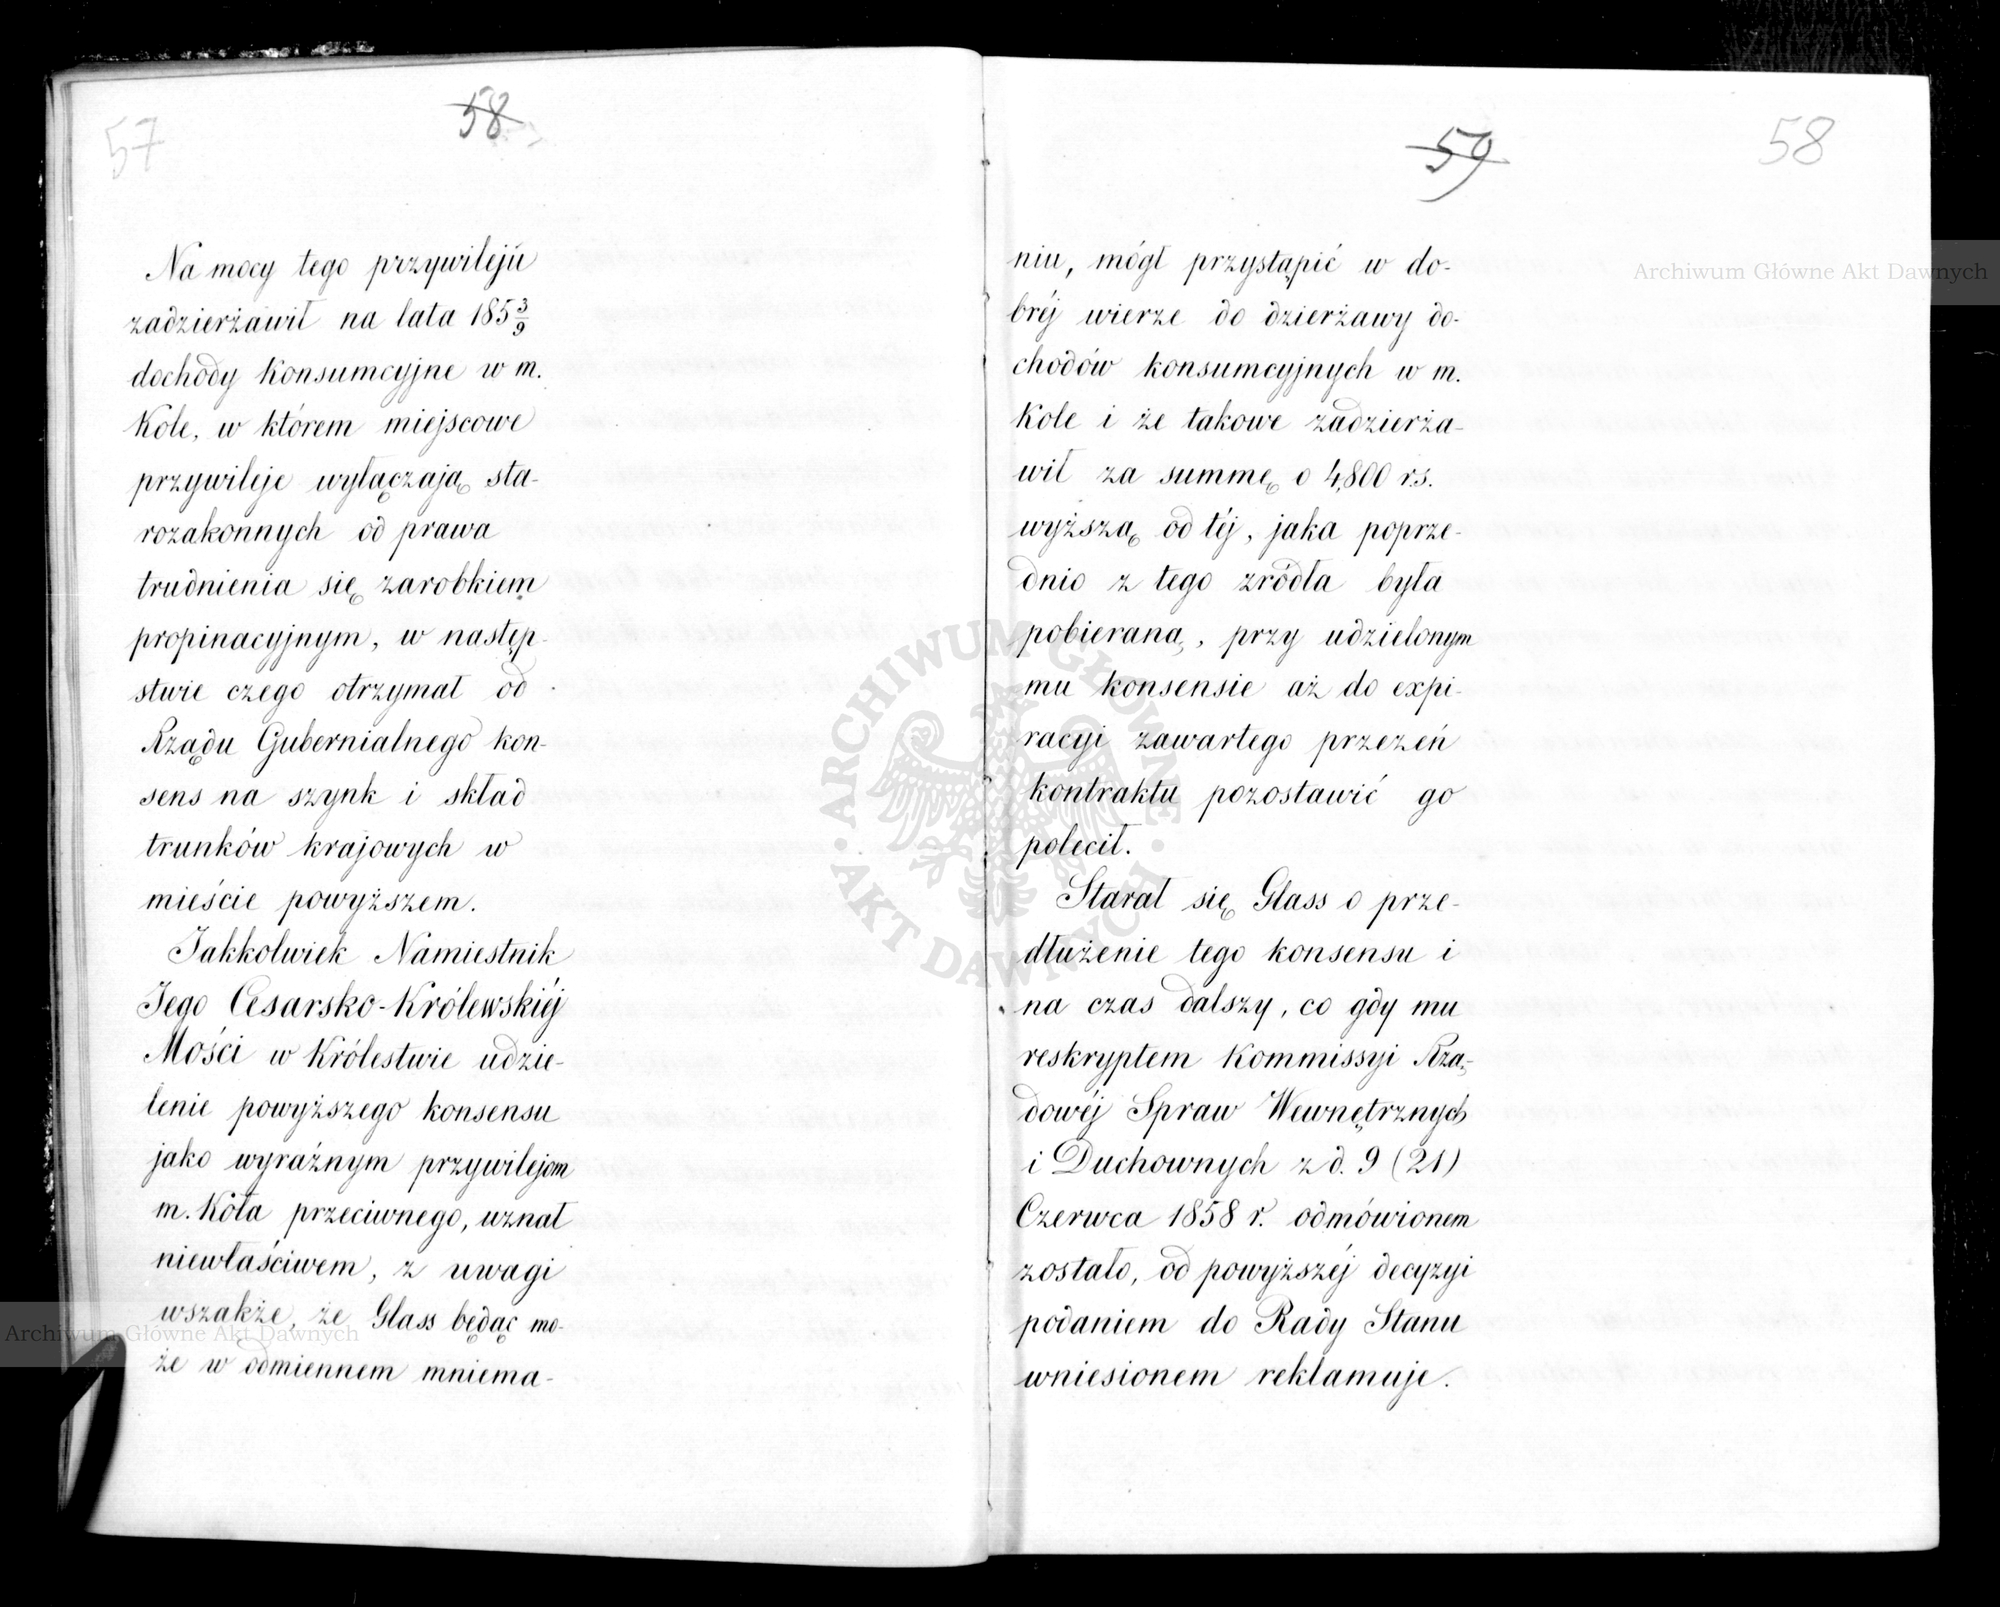 57
58
Na mocy tego przywileju
zadzierżawił na lata 185 3/9
dochody konsumcyjne w m.
Kole, w którem miejscowe
przywileje wyłączają sta-
rozakonnych od prawa
trudnienia się zarobkiem
propinacyjnym, w następ-
stwie czego otrzymał od
Rządu Gubernialnego kon-
sens na szynk i skład
trunków krajowych w
mieście powyższem.
Jakkolwiek Namiestnik
Jego Cesarsko-Królewskiéj
Mości w Królestwie udzie-
lenie powyższego konsensu
jako wyraźnym przywilejom
m. Koła przeciwnego, uznał
niewłaściwem, z uwagi
wszakże, że Glass będąc mo-
że w odmiennem mniema-
59
58
niu, mógł przystąpić w do-
bréj wierze do dzierżawy do-
chodów konsumcyjnych w m.
Kole i że takowe zadzierża-
wił za summę o 4,800 r.s.
wyższą od téj, jaka poprze-
dnio z tego zródła była
pobieraną, przy udzielonym
mu konsensie aż do expi-
racyi zawartego przezeń
kontraktu pozostawić go
polecił.
Starał się Glass o prze-
dłużenie tego konsensu i
na czas dalszy, co gdy mu
reskryptem Kommissyi Rzą-
dowéj Spraw Wewnętrznych
i Duchownych z d. 9 (21)
Czerwca 1858 r. odmówionem
zostało, od powyższéj decyzyi
podaniem do Rady Stanu
wniesionem reklamuje.
Archiwum Główne Akt Dawnych
Archiwum Główne Akt Dawnych
ARCHIWUM GŁÓWNE · AKT DAWNYCH ·